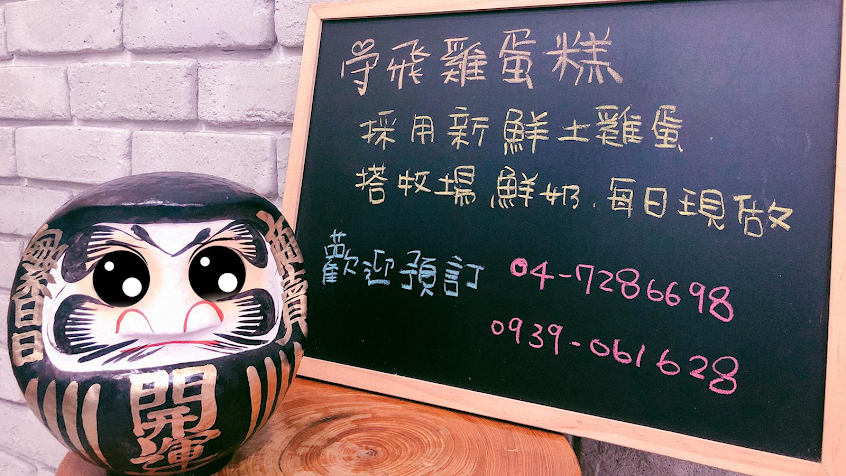 守飛雞蛋糕
採用新鮮土雞蛋
搭牧場鮮奶.每日現做
歡迎預訂 04-7286698
0939-061628
開運